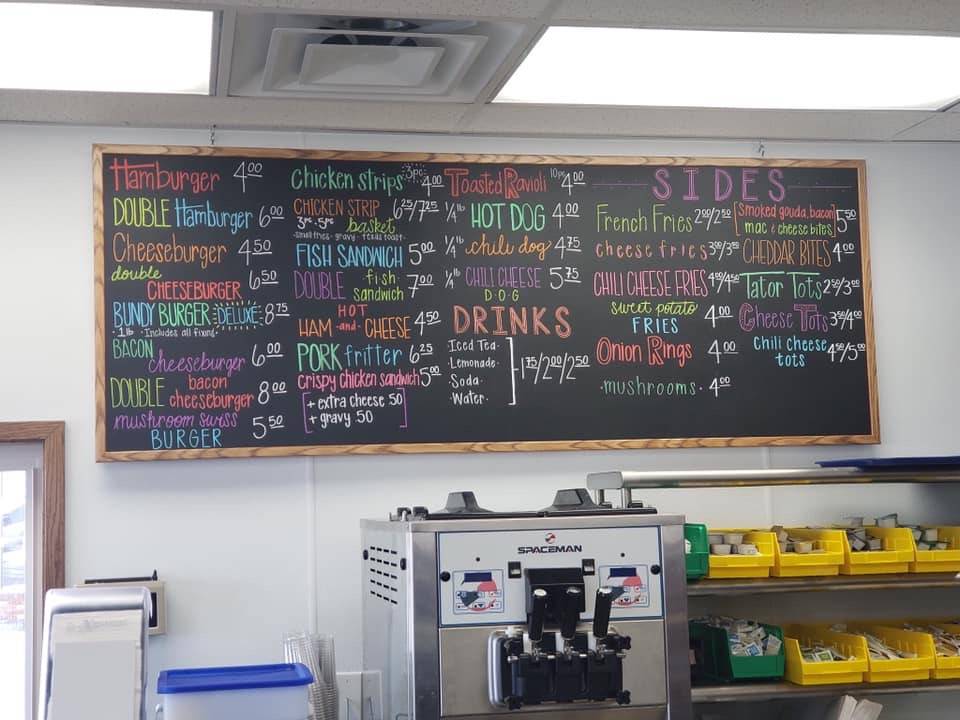 Hamburger 4.00
DOUBLE Hamburger 6.00
Cheeseburger 4.50
double
CHEESEBURGER 6.50
BUNDY BURGER DELUXE 8.75
· 1lb · Includes all fixins ·
BACON
cheeseburger 6.00
DOUBLE bacon
cheeseburger 8.00
mushroom swiss
BURGER 5.50
Chicken strips 3pc 4.00
CHICKEN STRIP 6.25/7.25
3pc · 5pc basket
· small fries · gravy · texas toast ·
FISH SANDWICH 5.00
DOUBLE fish
sandwich 7.00
HOT
HAM -and- CHEESE 4.50
PORK fritter 6.25
crispy chicken sandwich 5.00
+ extra cheese .50
+ gravy .50
Toasted Ravioli 10pc 4.00
1/4 lb HOT DOG 4.00
1/4 lb chili dog 4.75
1/4 lb CHILI CHEESE 5.75
DOG
DRINKS
Iced Tea ·
Lemonade ·
Soda ·
Water ·
1.75/2.00/2.50
SIDES
French Fries 2.00/2.50
cheese fries
CHILI CHEESE FRIES
sweet potato
FRIES 4.00
Onion Rings 4.00
· mushrooms · 4.00
Smoked gouda, bacon
mac & cheese bites 5.50
CHEDDAR BITES 4.00
Tator Tots 2.50/3.00
Cheese Tots 3.50/4.00
Chili cheese
tots 4.50/5.00
SPACEMAN